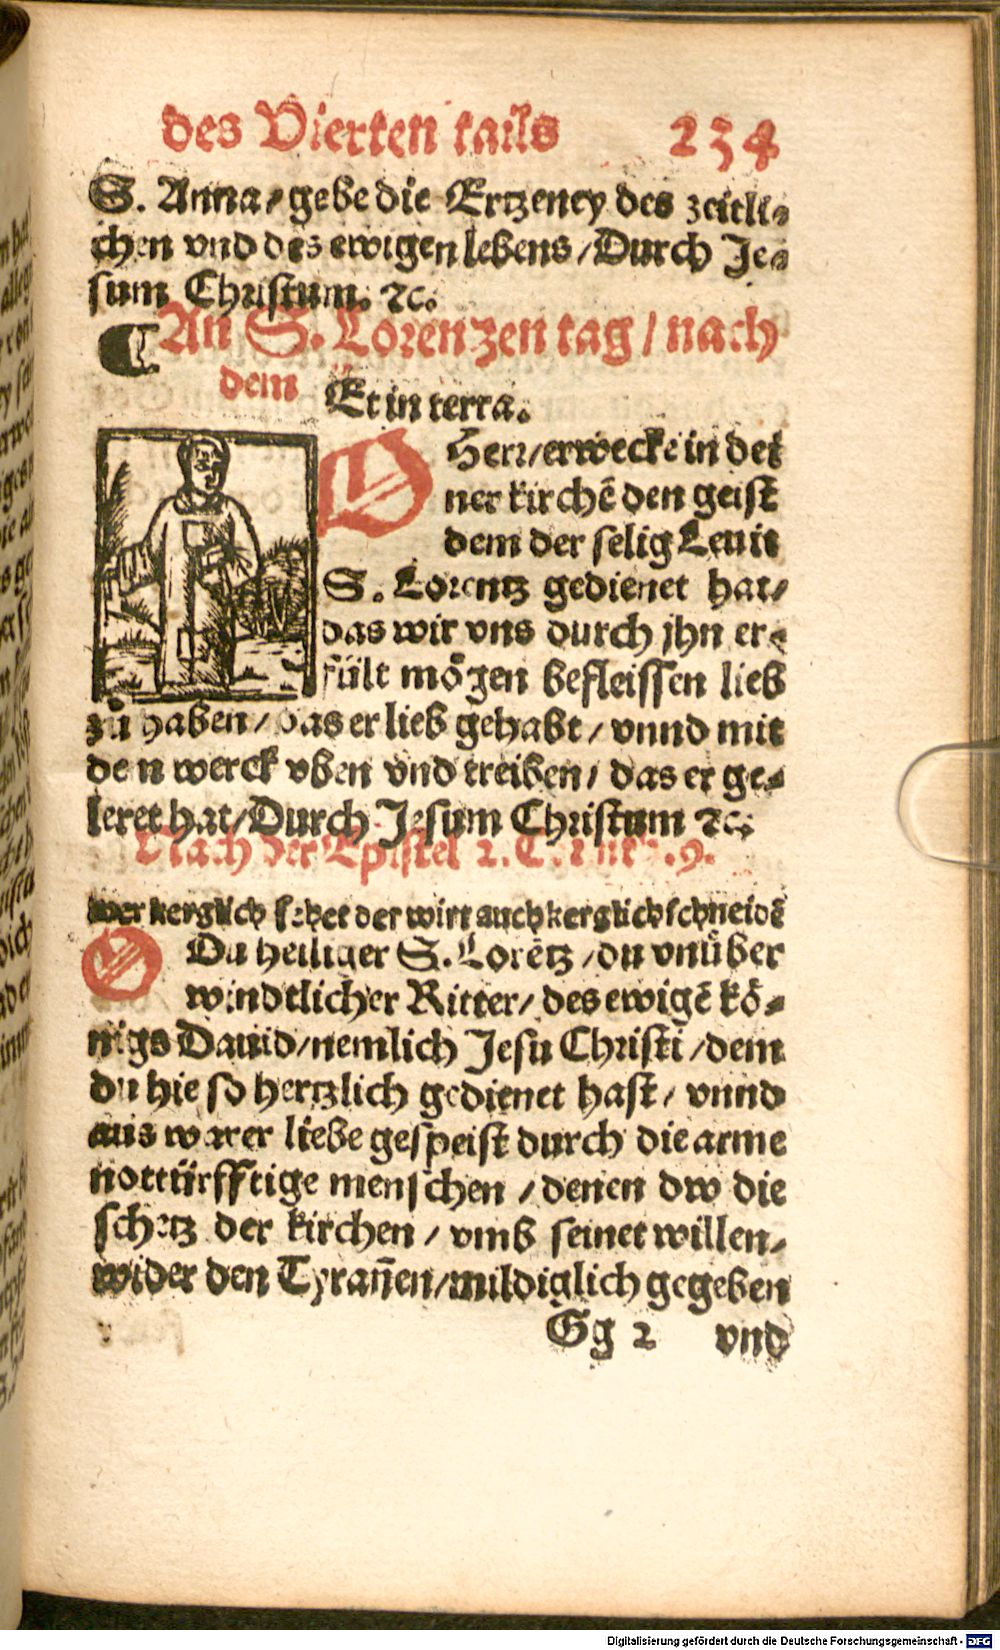 des Vierten tails 234
S. Anna/gebe die Ertzeney des zeitli-
chen vnd des ewigen lebens/Durch Je-
sum Christum. ꝛc.
¶ An S. Lorenzen tag/nach
dem Et in terra.
O Herr/erwecke in dei
ner kirchē den geist
dem der selig Leuit
S. Lorentz gedienet hat/
das wir vns durch jhn er-
fült mögen befleissen lieb
zů haben/das er lieb gehabt/vnnd mit
den werck vben vnd treiben/das er ge-
leret hat/Durch Jesum Christum ꝛc.
Nach der Epistel 2. Corinth. 9.
wer kerglich sehet der wirt auch kerglich schneidē
O Du heiliger S. Lorētz/du vnüber
windtlicher Ritter/des ewigē kö-
nigs Dauid/nemlich Jesu Christi/dem
du hie so hertzlich gedienet hast/vnnd
aus warer liebe gespeist durch die arme
nottürfftige menschen/denen dw die
schetz der kirchen/vmb seinet willen-
wider den Tyrañen/mildiglich gegeben
Gg 2 vnd
Digitalisierung gefördert durch die Deutsche Forschungsgemeinschaft - DFG